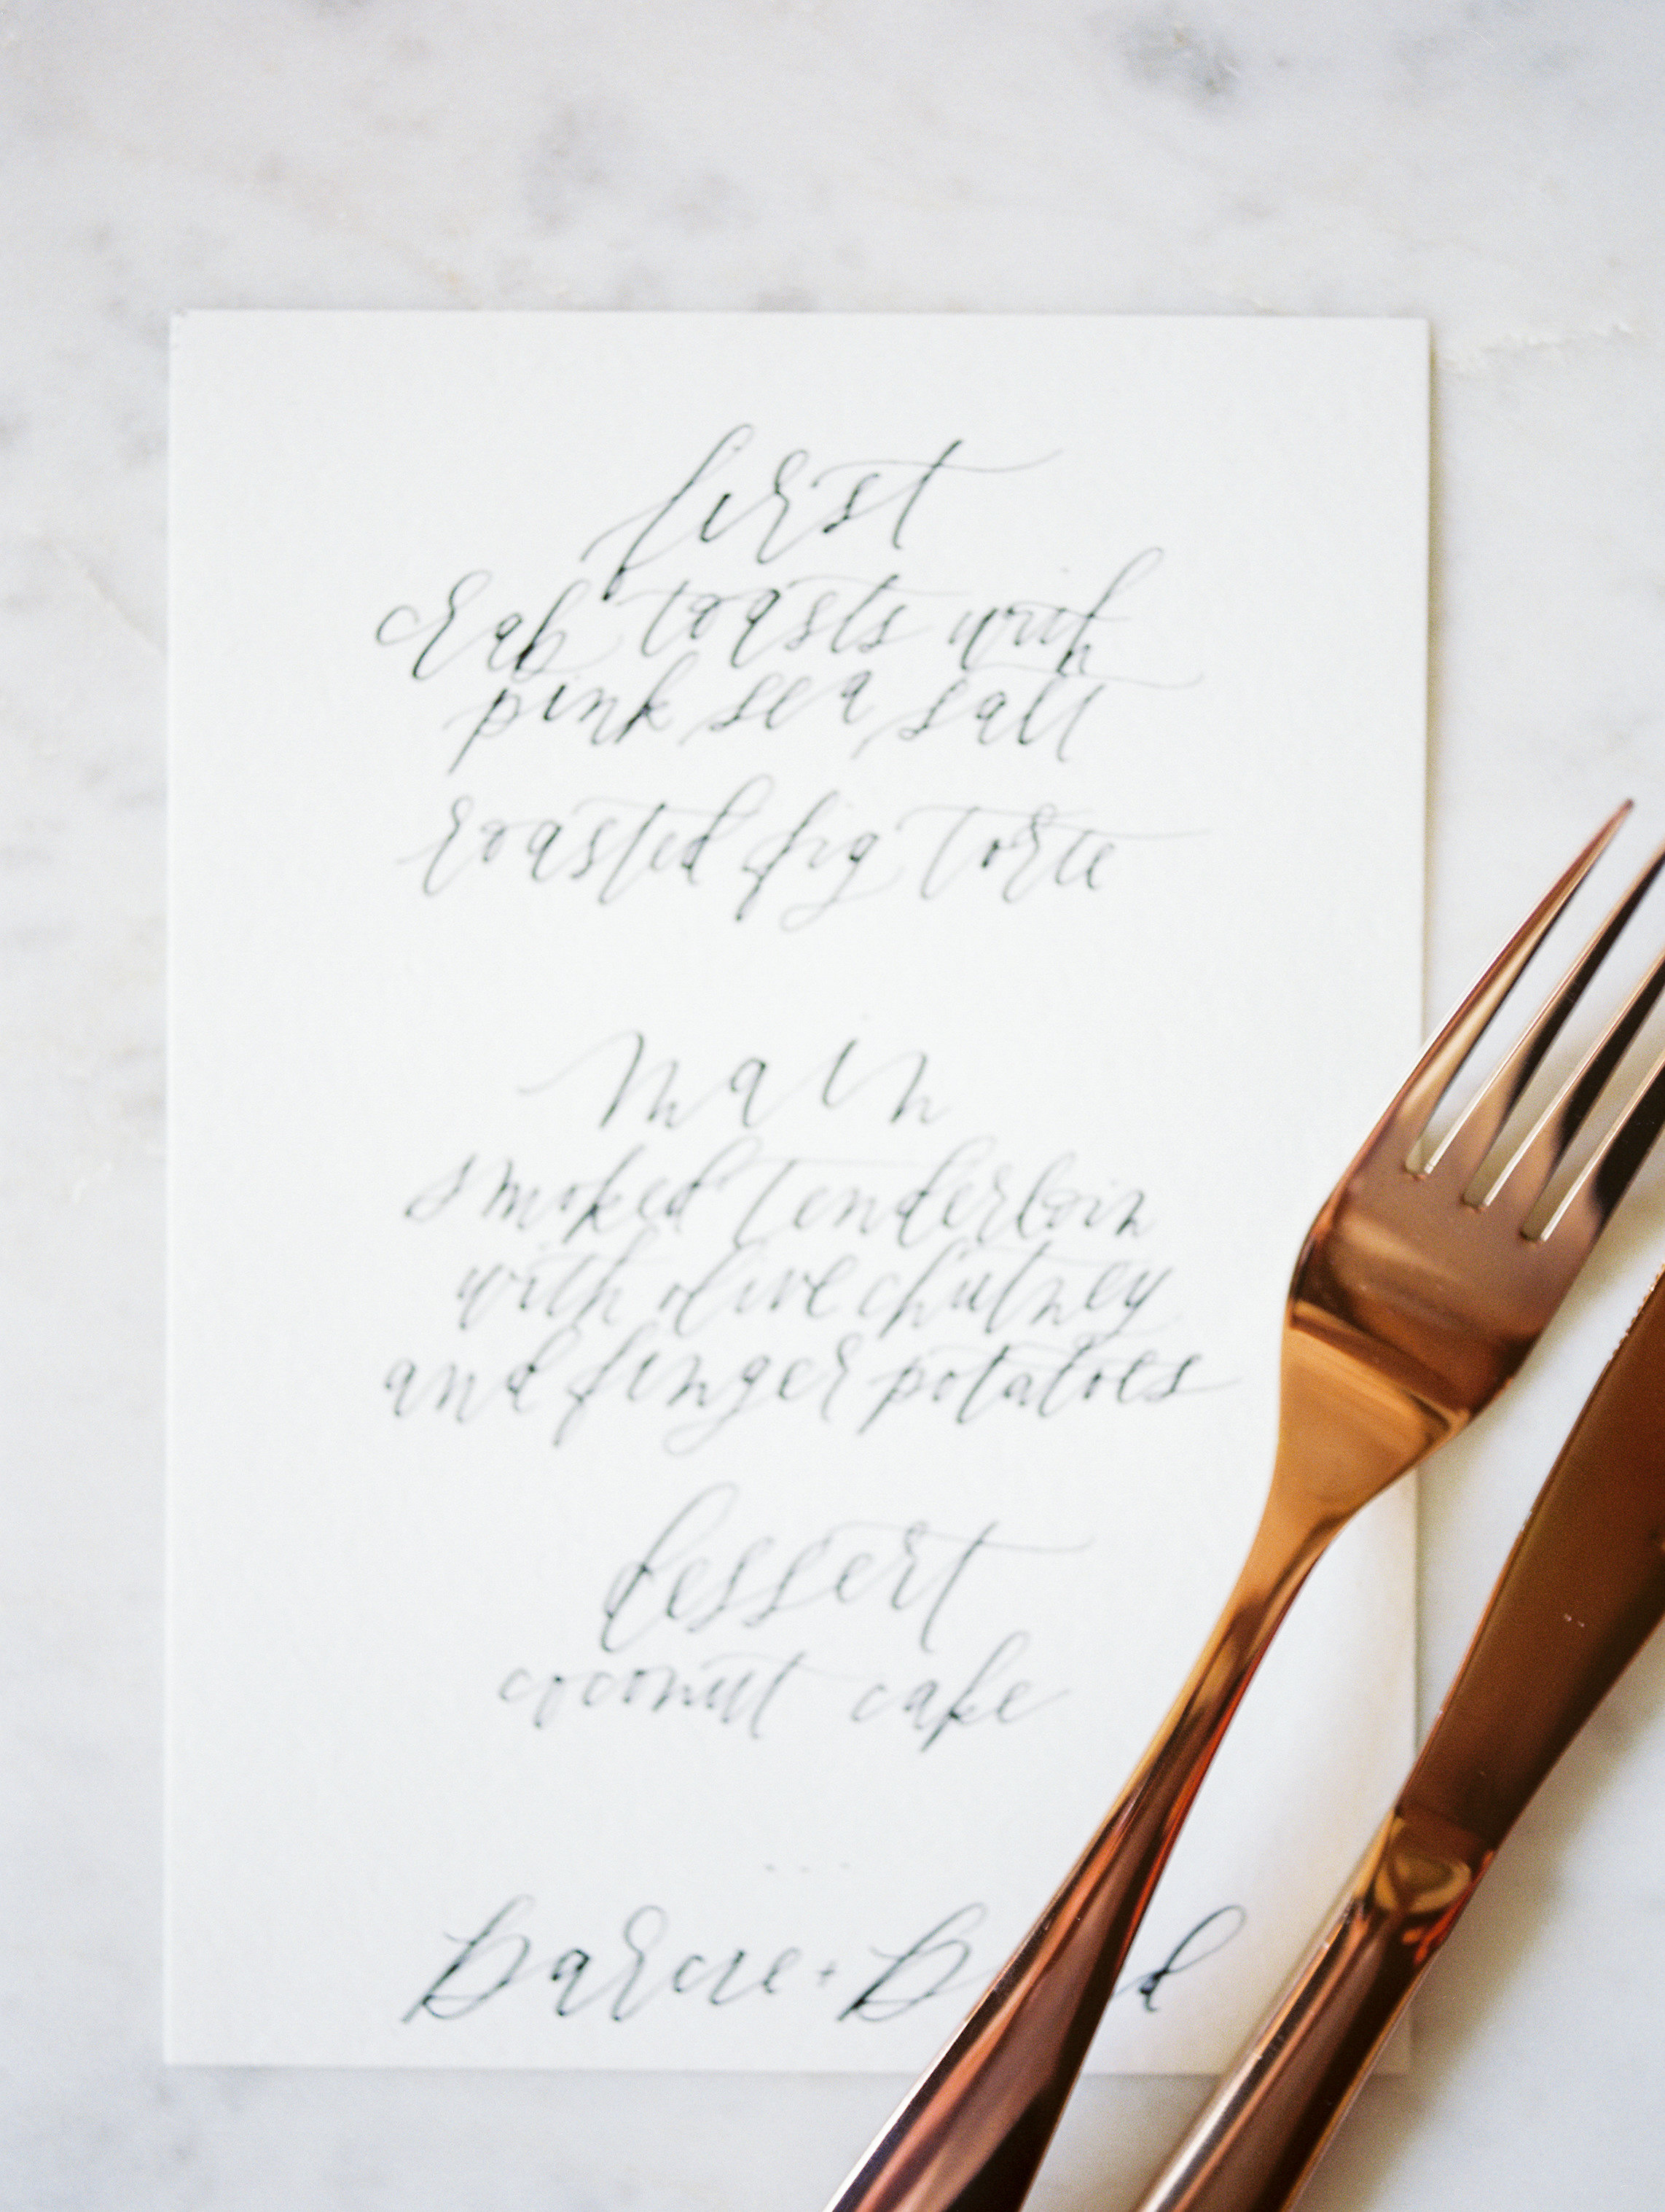 first
crab toasts with
pink sea salt
roasted fig torte
main
smoked tenderloin
with olive chutney
and finger potatoes
dessert
coconut cake
...
+